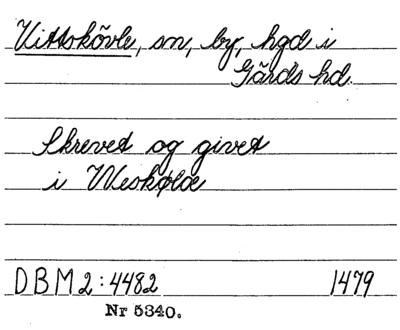 Vittskövle, sn, by, hgd i
Gärds hd.
Skrevet og givet
i Weskøle
DBM2:4482 1479
Nr 5340.